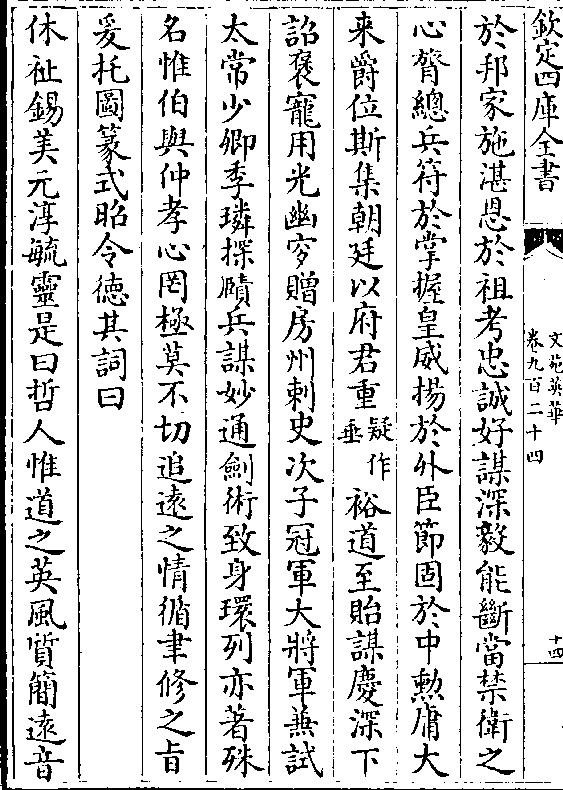 欽定四庫全書
文苑英華
卷九百二十四
十四
於邦家施湛恩於祖考忠誠好謀深毅能斷當禁衛之
心膂總兵符於掌握皇威揚於外臣節固於中勲庸大
来爵位斯集朝廷以府君重疑作垂裕道至貽謀慶深下
詔褒寵用光幽穸贈房州刺史次子冠軍大將軍兼試
太常少卿季璘探賾兵謀妙通劍術致身環列亦著殊
名惟伯與仲孝心罔極莫不切追遠之情循聿修之旨
爰托圖篆式昭令徳其詞曰
休祉錫美元淳毓靈是曰哲人惟道之英風質簡遠音